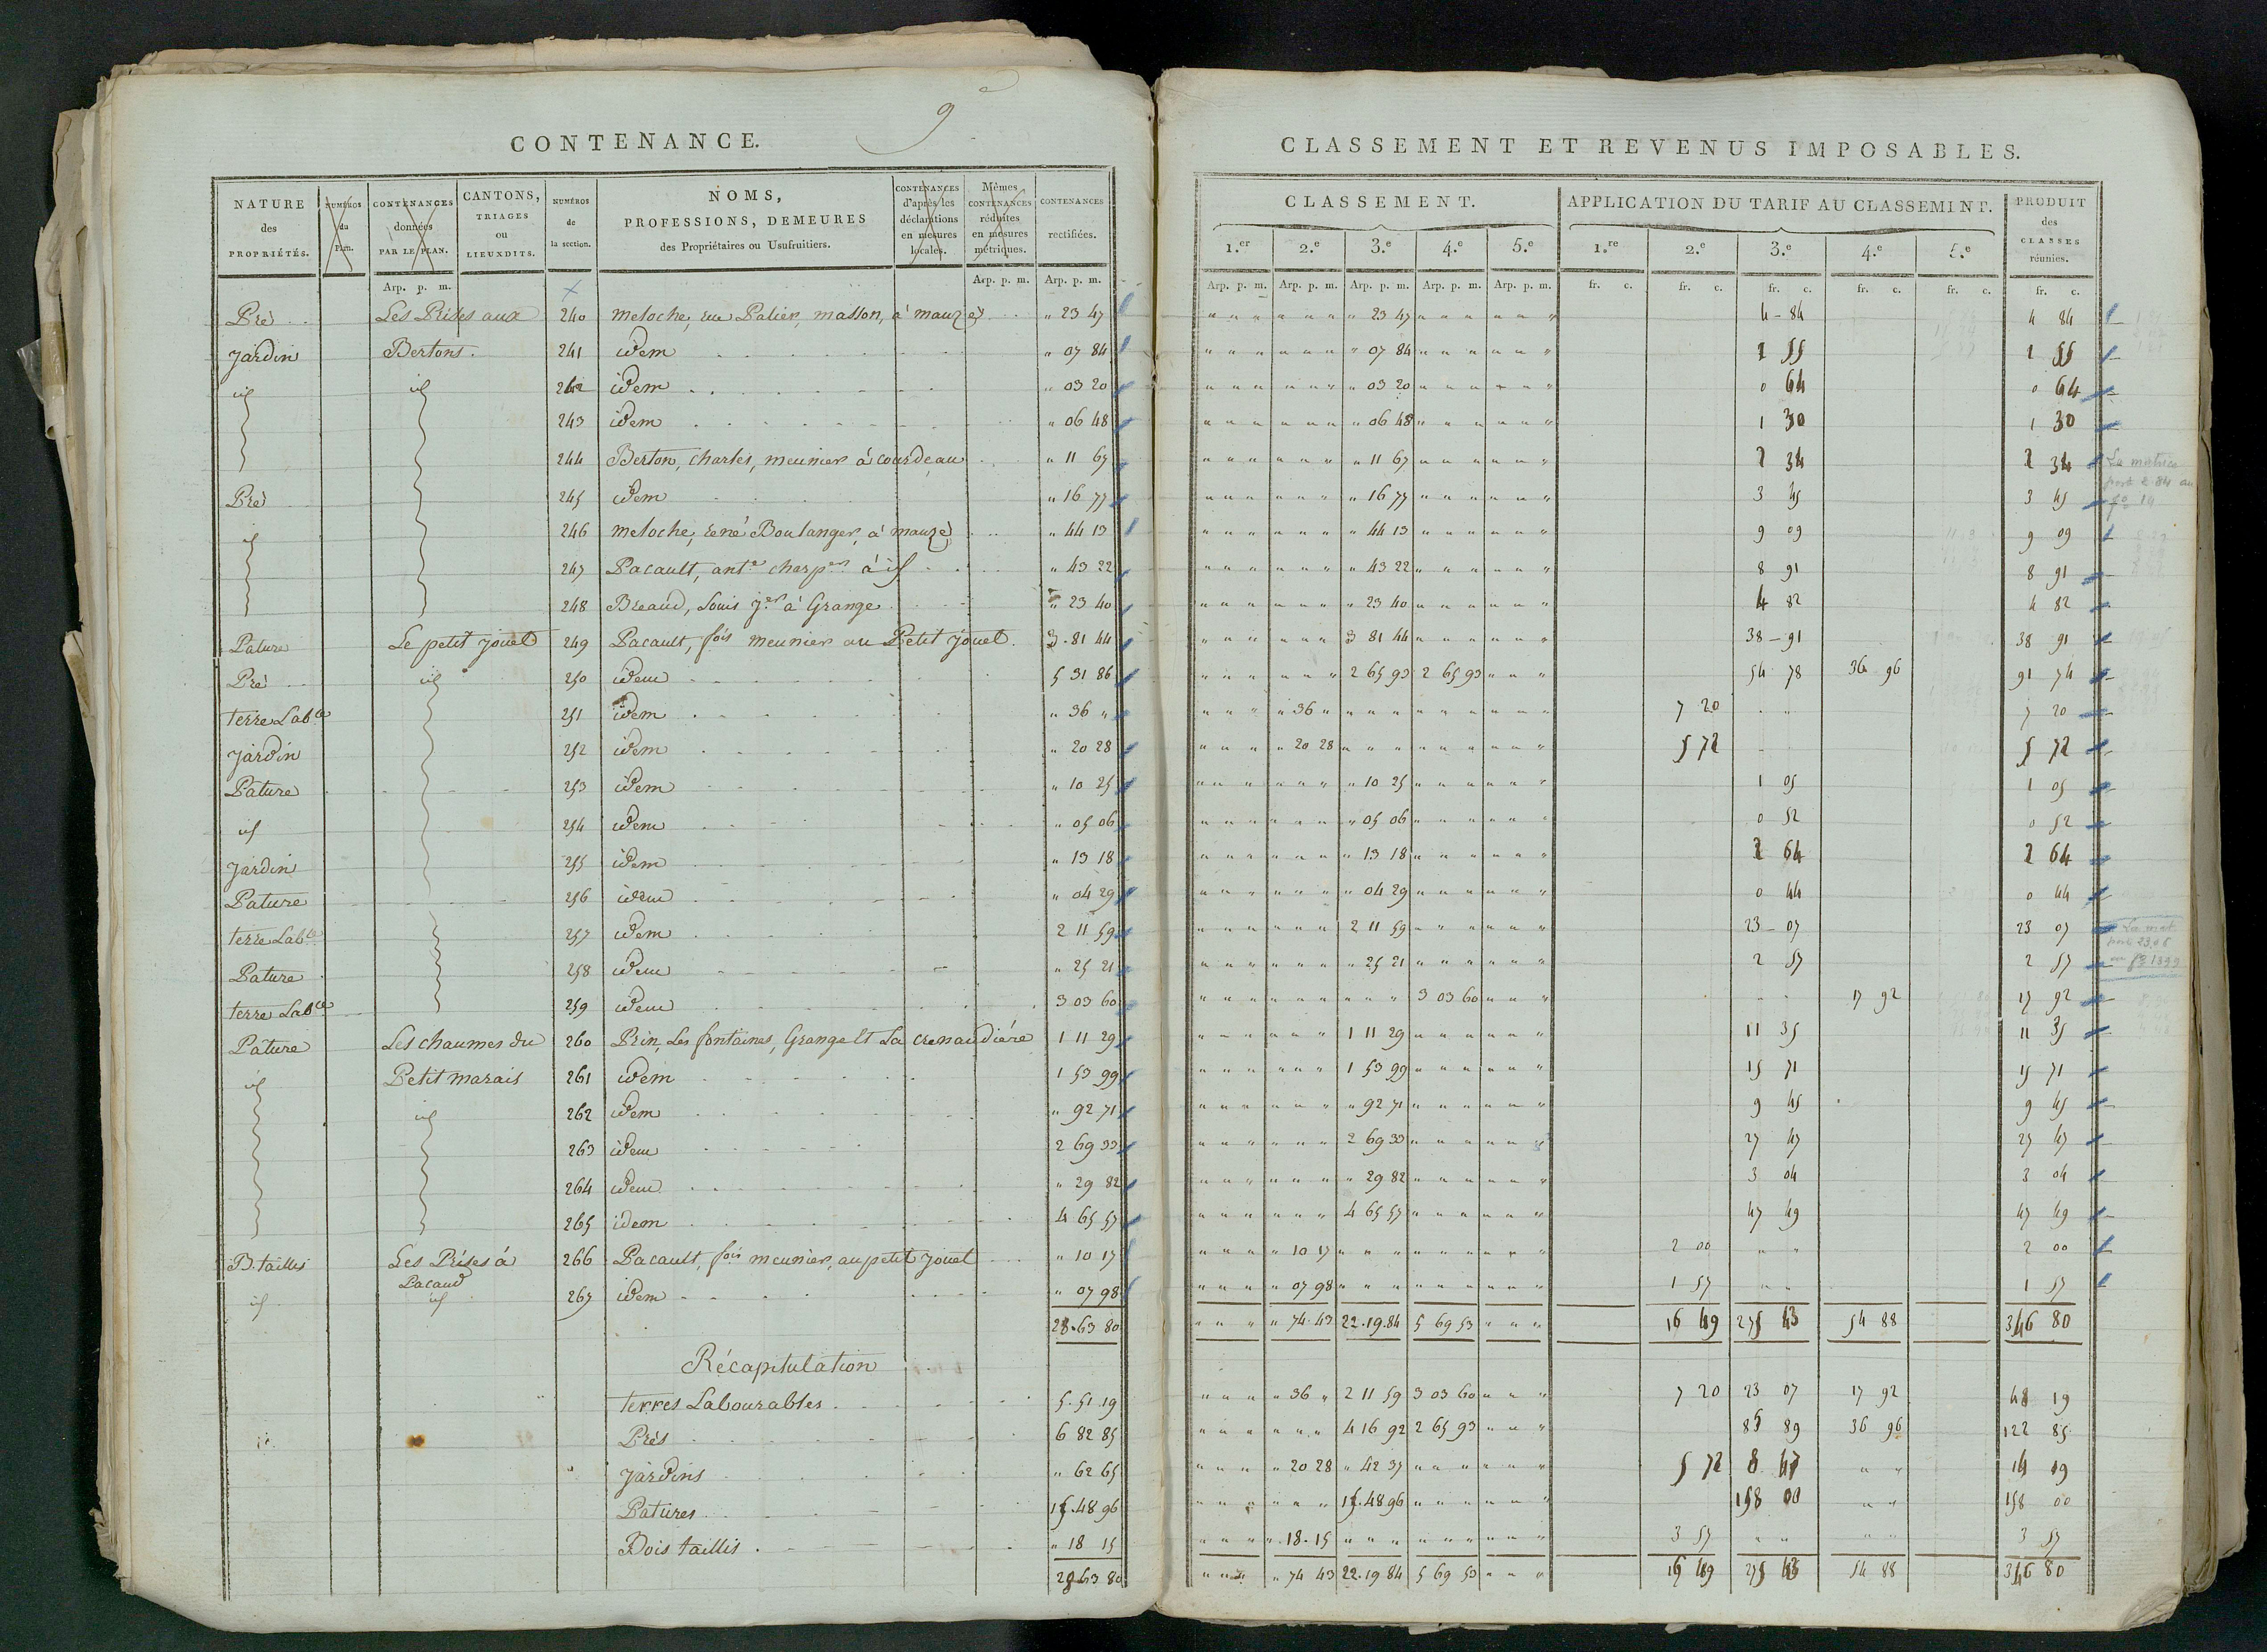 9e
CONTENANCE.
NATURE des PROPRIÉTÉS. NUMÉROS du Plan. CONTENANCES données PAR LE PLAN. CANTONS, TRIAGES OU LIEUXDITS. NUMÉROS de la section. NOMS, PROFESSIONS, DEMEURES des Propriétaires ou Usufruitiers. CONTENANCES d'après les déclarations en mesures locales. Mêmes CONTENANCES réduites en mesures métriques. CONTENANCES rectifiées.
Arp. p. m. Arp. p. m. Arp. p. m.
Pré Les Prises aux 240 meloche, rue Palier, masson, à mauzé " 23 47
Jardin Bertons. 241 idem " 07 84
id id 242 idem " 03 20
243 idem " 06 48
244 Berton, charles, meunier à courdeau " 11 67
Pré 245 idem " 16 77
id 246 meloche, rené Boulanger, à mauzé " 44 13
247 Pacault, ante charper à id " 43 22
248 Breaud, Louis jer à Grange " 23 40
Pature Le petit jouet 249 Pacault, fois meunier au Petit jouet. 3.81 44
Pré id 250 idem 5 31 86
terre Lable 251 idem " 36 "
Jardin 252 idem " 20 28
Pature 253 idem " 10 25
id 254 idem " 05 06
Jardin 255 idem " 13 18
Pature 256 idem " 04 29
terre Lable 257 idem 2 11 59
Pature 258 idem " 25 21
terre Lable 259 idem 3 03 60
Pature Les chaumes du 260 Prin, Les fontaines, Grange et La crenaudiére 1 11 29
id Petit marais 261 idem 1 53 99
id 262 idem " 92 71
263 idem 2 69 33
264 idem " 29 82
265 idem 4 65 57
B. taillis Les Prises á 266 Pacault, fois meunier, au petit jouet " 10 17
Pacaud
id id 267 idem " 07 98
28.63 80
Récapitulation
terres Labourables 5.51.19
Prés 6 82 85
Jardins " 62 65
Patures 15.48 96
Bois taillis. " 18 15
28 63 80
CLASSEMENT ET REVENUS IMPOSABLES.
CLASSEMENT. APPLICATION DU TARIF AU CLASSEMENT. PRODUIT des CLASSES réunies.
1.er 2.e 3.e 4.e 5.e 1.re 2.e 3.e 4.e 5.e
Arp. p. m. Arp. p. m. Arp. p. m. Arp. p. m. Arp. p. m. fr. c. fr. c. fr. c. fr. c. fr. c. fr. c.
" 23 47 4 - 84 4 84
" 07 84 1 55 1 55
" 03 20 0 64 0 64
" 06 48 1 30 1 30
" 11 67 2 34 2 34 La matrice
port 2 84 au
fo 14
" 16 77 3 45 3 45
" 44 13 9 09 9 09
" 43 22 8 91 8 91
" 23 40 4 82 4 82
3 81 44 38 - 91 38 91
2 65 93 2 65 93 54 78 36 96 91 74
" 36 " 7 20 7 20
" 20 28 5 72 5 72
" 10 25 1 05 1 05
" 05 06 0 52 0 52
" 13 18 2 64 2 64
" 04 29 0 44 0 44
2 11 59 23 - 07 23 07 La mat
porte 23.06
au fo 1399
" 25 21 2 57 2 57
3 03 60 17 92 17 92
1 11 29 11 35 11 35
1 53 99 15 71 15 71
" 92 71 9 45 9 45
2 69 33 27 47 27 47
" 29 82 3 04 3 04
4 65 57 47 49 47 49
" 10 17 2 00 " " 2 00
" 07 98 1 57 " " 1 57
" 74.43 22.19.84 5 69 53 16 49 275 43 54 88 346 80
" 36 " 2 11 59 3 03 60 7 20 23 07 17 92 48 19
4 16 92 2 65 93 85 89 36 96 122 85
" 20 28 " 42 37 5 72 8 47 " " 14 19
15.48 96 158 00 " " 158 00
" 18.15 3 57 " " " " 3 57
" 74 43 22.19 84 5 69 53 16 49 275 43 54 88 346 80